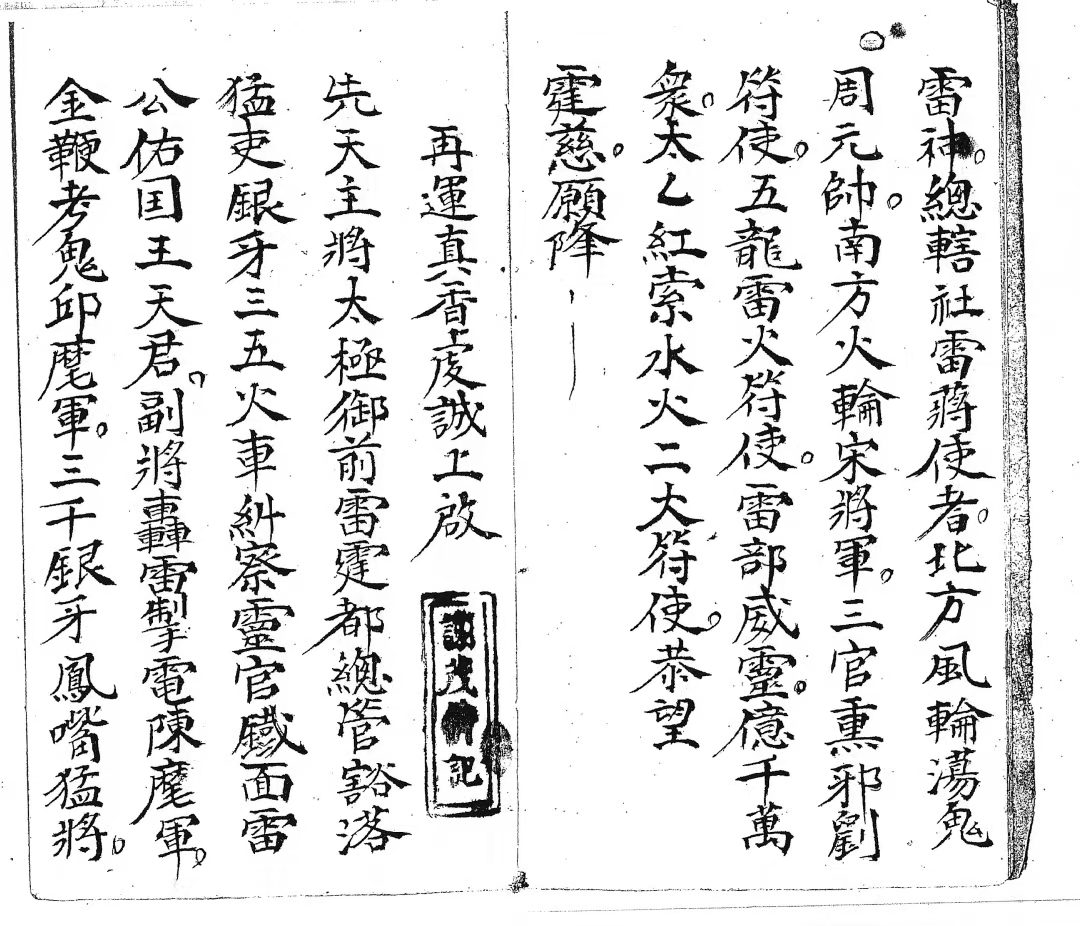 雷神。總轄社雷蔣使者。北方風輪蕩鬼
周元帥。南方火輪宋將軍。三官熏邪劉
符使。五龍雷火符使。雷部威靈。億千萬
衆。太乙紅索水火二大符使。恭望
霆慈。願降
再運真香虔誠上啟
謝茂 記
先天主將太極御前雷霆都總管豁落
猛吏銀牙三五火車糾察靈官鐵面雷
公佑囯王天君。副將轟雷掣電陳麾軍。
金鞭考鬼邱麾軍。三千銀牙鳳嘴猛將。